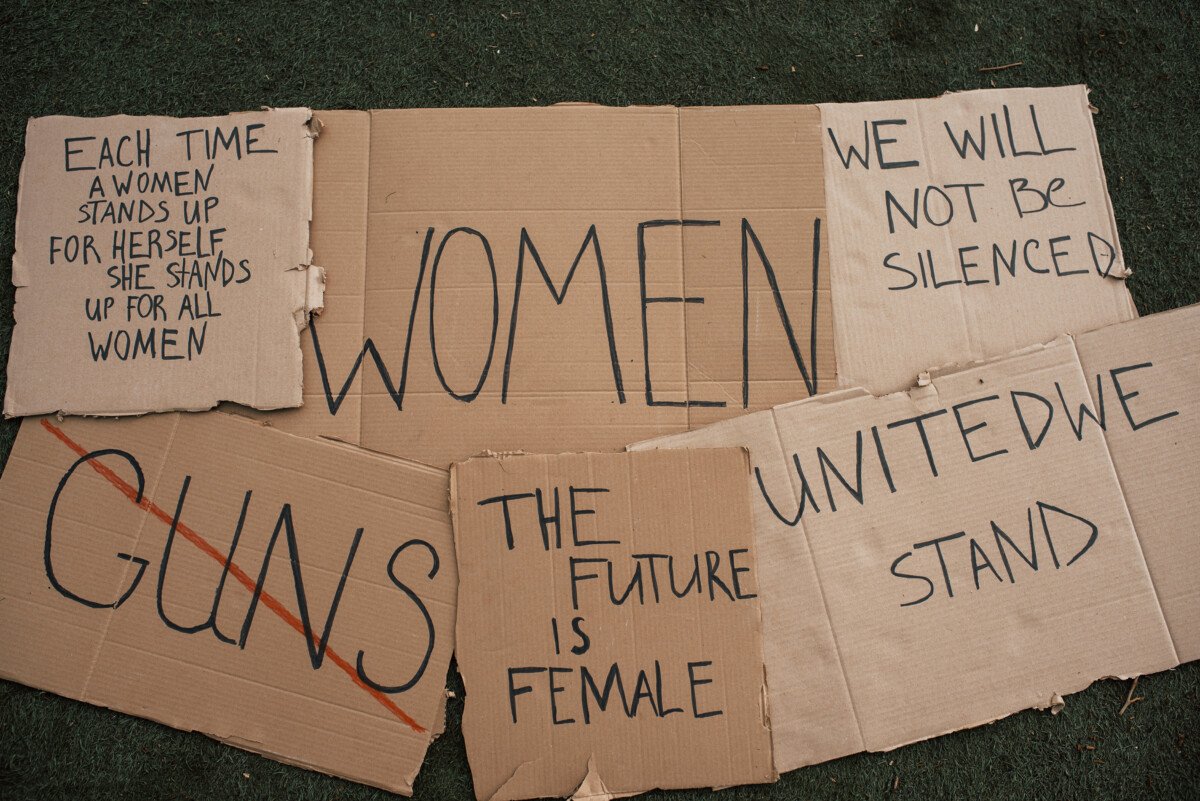 EACH TIME
A WOMEN
STANDS UP
FOR HERSELF
SHE STANDS
UP FOR ALL
WOMEN
WOMEN
WE WILL
NOT Be
SILENCED
GUNS
THE
FUTURE
IS
FEMALE
UNITEDWE
STAND